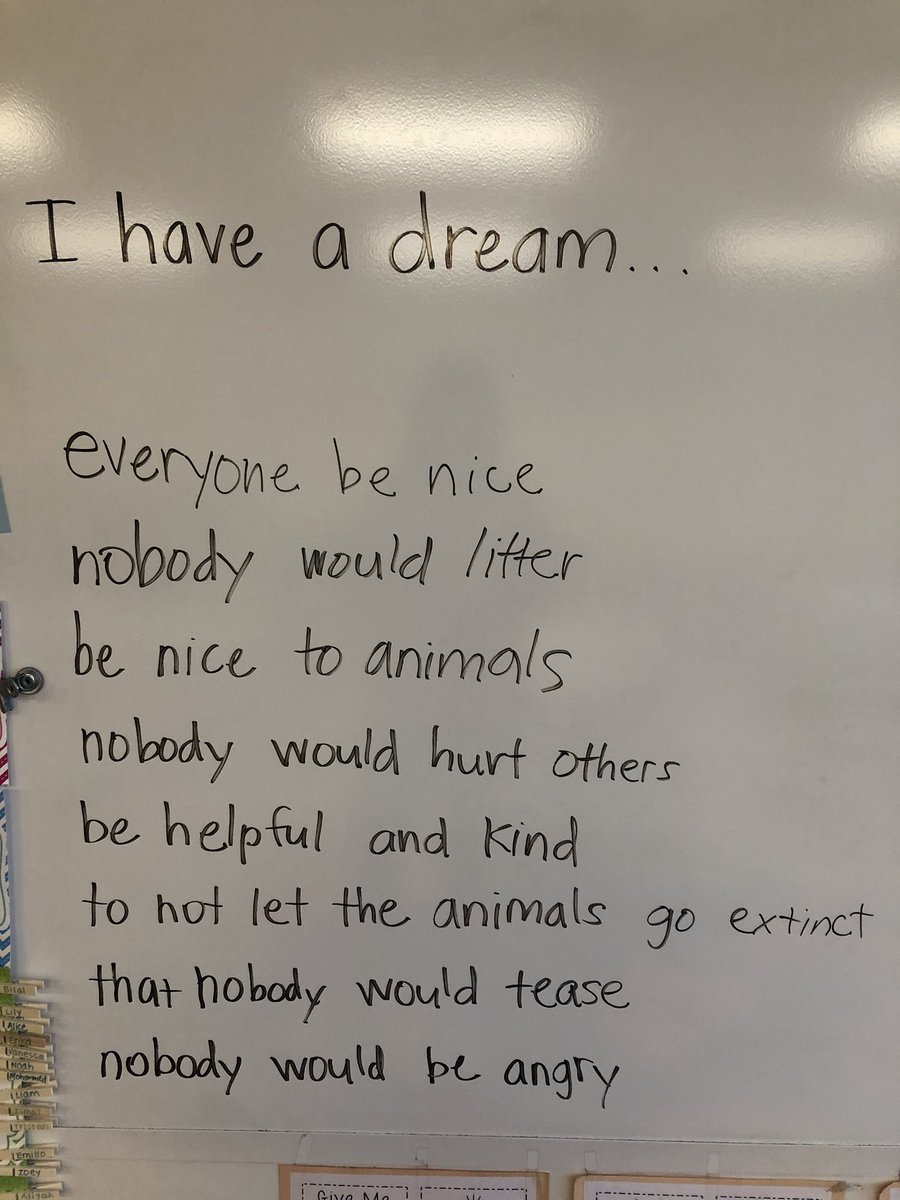 I have a dream...
everyone be nice
nobody would litter
be nice to animals
nobody would hurt others
be helpful and kind
to not let the animals go extinct
that nobody would tease
nobody would be angry
Bilal
Lily
Alice
Erika
Vanessa
Noah
Mohammed
Liam
Ismail
Tristan
Emilio
Zoey
Aliyah
Give Me